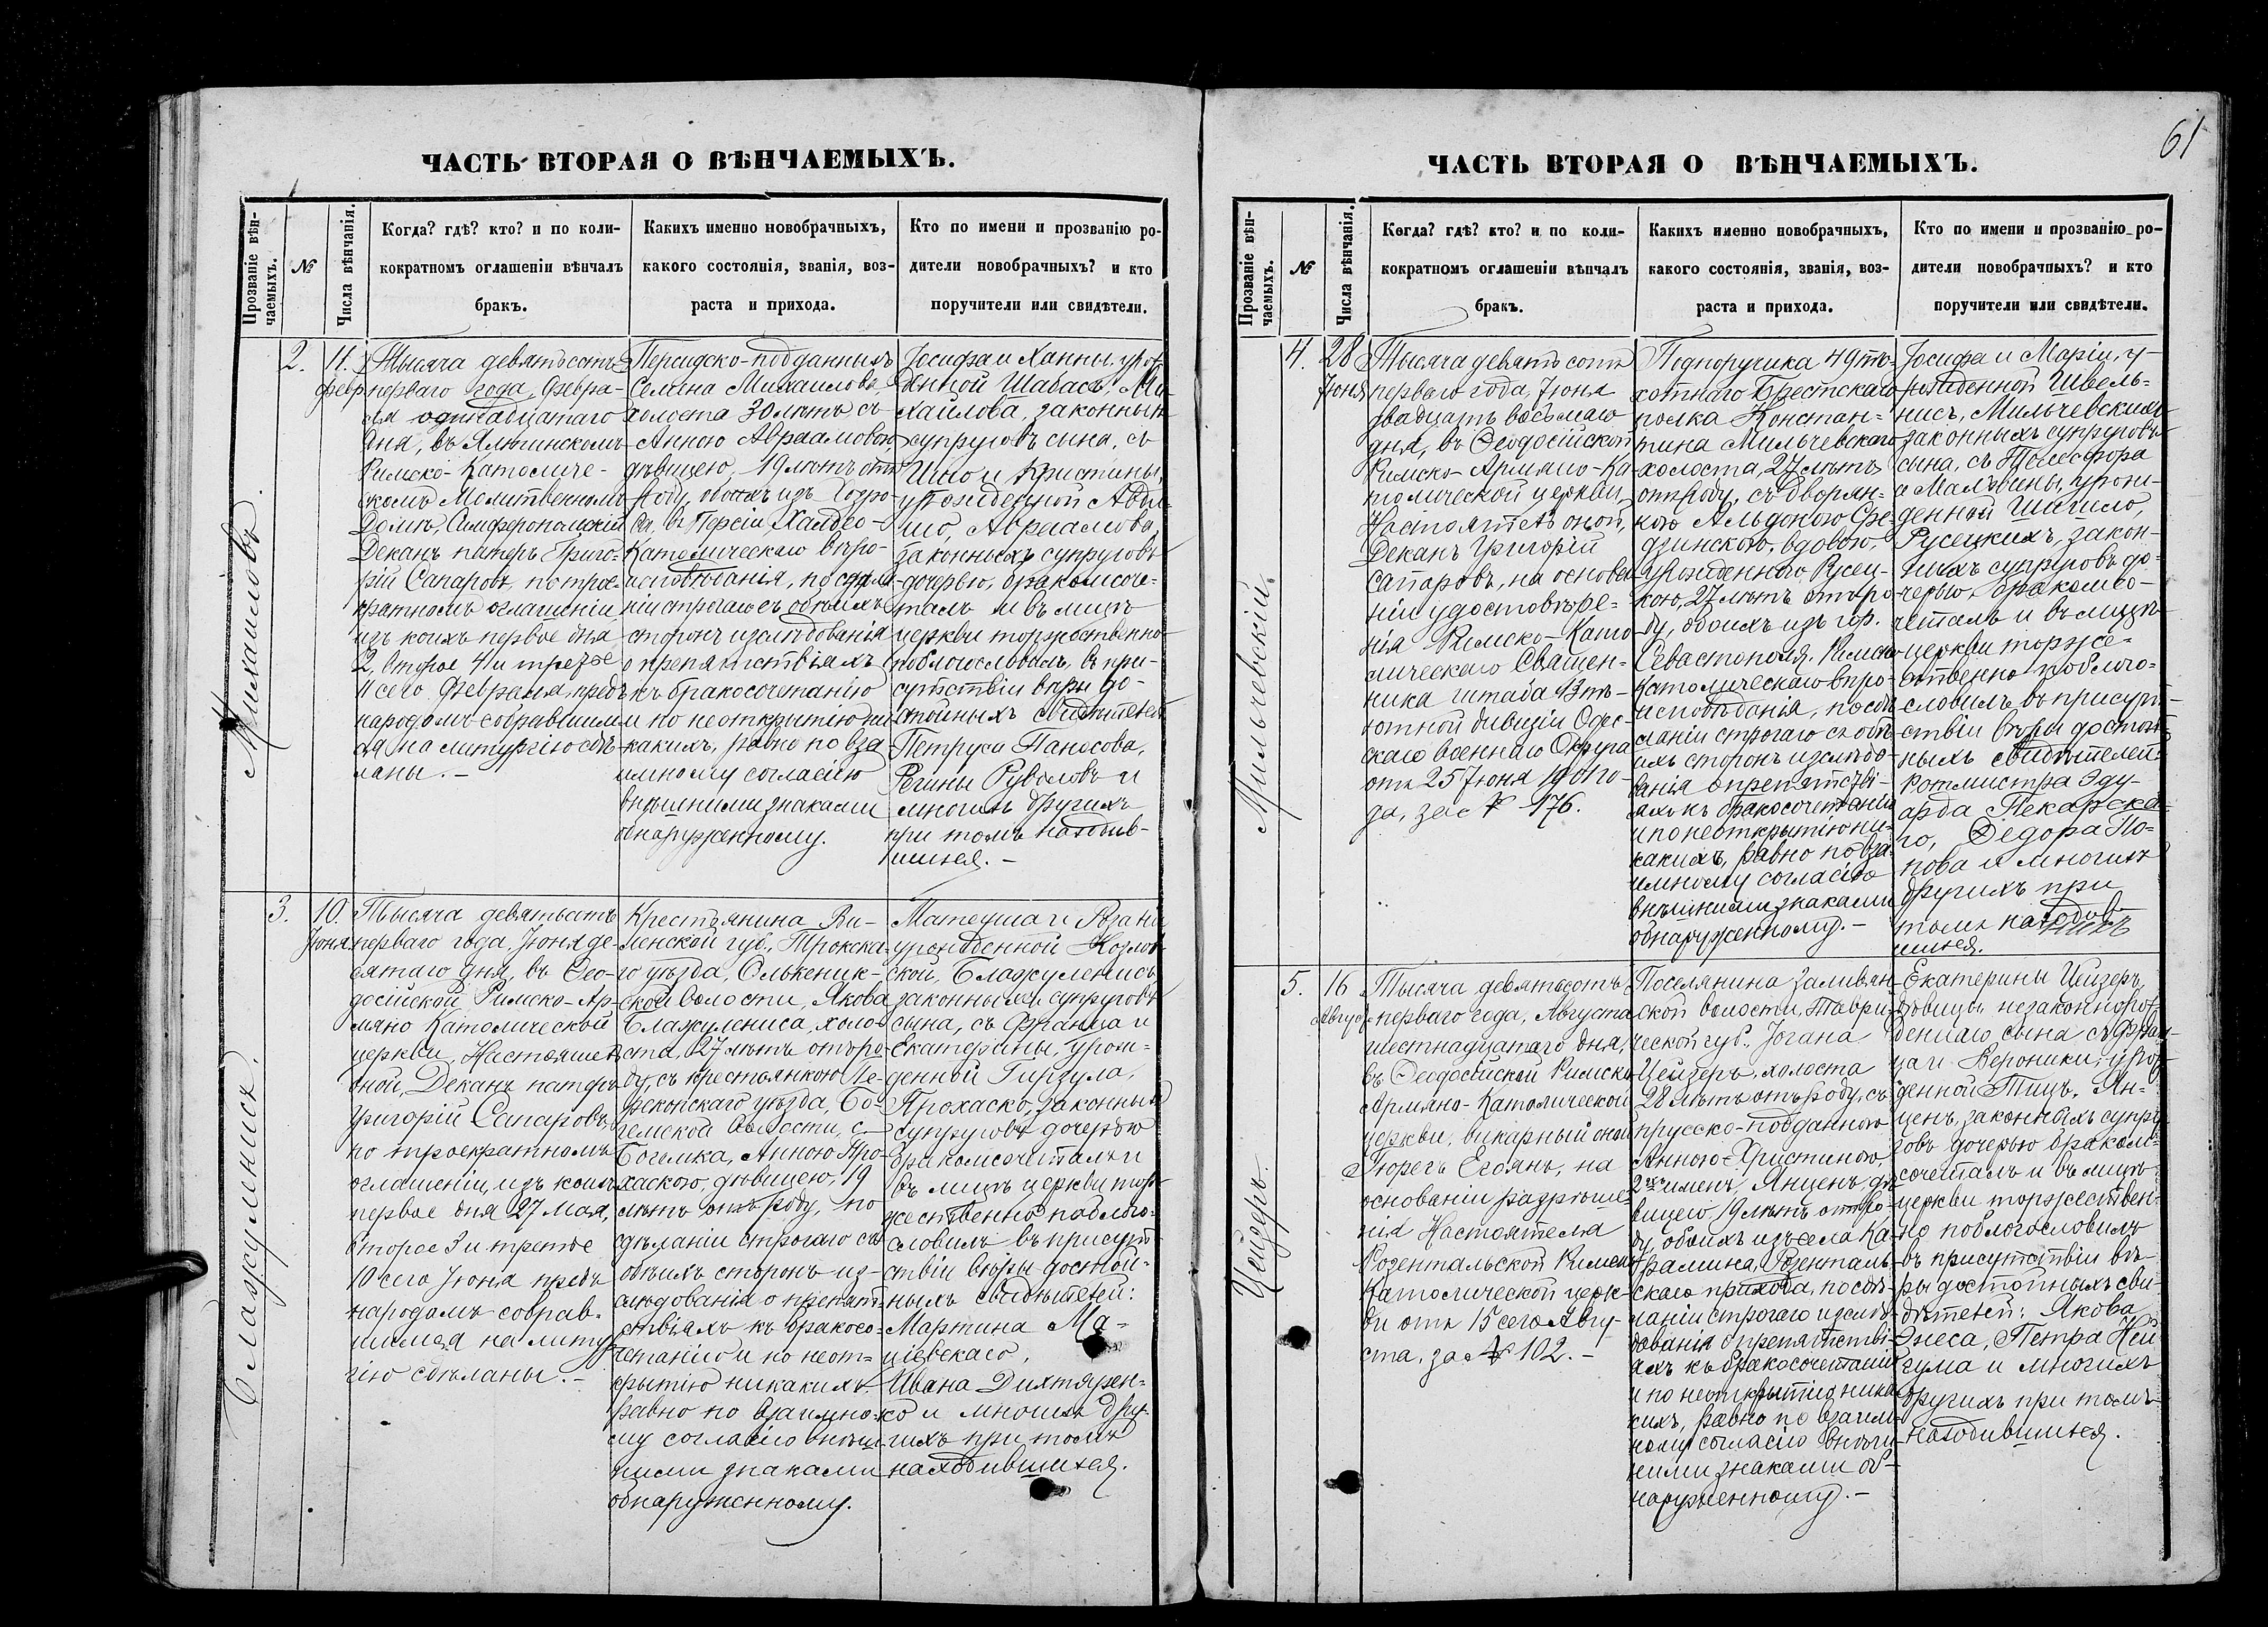 ЧАСТЬ ВТОРАЯ О ВѢНЧАЕМЫХЪ.
Прозваніе вѣн-
чаемыхъ.
№
Числа вѣнчанія.
Когда? гдѣ? кто? и по коли-
кократномъ оглашеніи вѣнчалъ
бракъ.
Какихъ именно новобрачныхъ,
какого состоянія, званія, воз-
раста и прихода.
Кто по имени и прозванію ро-
дители новобрачныхъ? и кто
поручители или свидѣтели.
Михаиловъ.
2.
11.
февр
Тысяча девятьсотъ
перваго года, Февра-
ля одинадцатаго
дня, въ Ялтинскомъ
Римско-Католиче-
скомъ Молитвенномъ
Домѣ, Симферопольскій
Деканъ патеръ Григо-
рій Сапаровъ, по трое-
кратномъ оглашеніи
изъ коихъ первое дня
2, второе 4 и третье
11 сего Февраля, предъ
народомъ собравшим-
ся на литургію сдѣ-
ланы.-
Персидско-подданныхъ
Семена Михаилова,
холоста 30 лѣтъ съ
Анною Авраамовою,
дѣвицею, 19 лѣтъ отъ
роду, обоихъ изъ Хосро-
ва, въ Персіи, Халдео-
Католическаго вѣро-
исповѣданія, по сдѣла-
ніи строгаго съ обоихъ
сторонъ изслѣдованія
о препятствіяхъ
къ бракосочетанію
и по неоткрытію ни-
какихъ, равно по вза
имному согласію
внѣшними знаками
обнаруженному.
Іосифа и Ханны, урож-
денной Шабасъ, Ми-
хаилова, законныхъ
супруговъ сына, съ
Ишо и Кристины,
урожденной Авди-
шо, Авраамова,
законныхъ супруговъ
дочерью, бракомсоче-
талъ и въ лицѣ
церкви торжественно
поблагословилъ, въ при-
сутствіи вѣры до-
стойныхъ свидѣтелей
Петруса Паносова,
Регины Рувеловъ и
многихъ другихъ
при томъ находив-
шихся.-
Блажуленисъ.
3.
10.
Іюня
Тысяча девятьсотъ
перваго года, Іюня де-
сятаго дня, въ Ѳео-
досійской Римско-Ар-
мяно Католической
церкви, Настоятель
оной, Деканъ патеръ
Григорій Сапаровъ,
по троекратномъ
оглашеніи, изъ коихъ
первое дня 27 Мая,
второе 3 и третье
10 сего Іюня предъ
народомъ собрав-
шимся на литур-
гію сдѣланы.-
Крестьянина Ви-
ленской губ., Трокска-
го уѣзда, Олькеник-
ской волости, Якова
Блажулениса, холо-
ста, 27 лѣтъ отъ ро-
ду, съ крестьянкою Пе-
рекопскаго уѣзда, Бо-
гемской волости, с.
Богемка, Анною Про-
хаскою, дѣвицею, 19
лѣтъ отъ роду, по
сдѣланіи строгаго съ
обѣихъ сторонъ из-
слѣдованія о препят-
ствіяхъ къ бракосо-
четанію и по неот-
крытію никакихъ,
равно по взаимно-
му согласію внѣш-
ними знаками
обнаруженному.
Матеуша и Розаліи
урожденной Козлов-
ской, Блажуленисъ
законныхъ супруговъ
сына, съ Франца и
Екатерины, урож-
денной Гирзула,
Прохаско, законныхъ
супруговъ дочерью
бракомсочеталъ и
въ лицѣ церкви тор-
жественно поблаго-
словилъ въ присут-
ствіи вѣры достой-
ныхъ свидѣтелей:
Мартина Ма-
ціевскаго,
Ивана Дихтярен-
ко и многихъ дру-
гихъ при томъ
находившихся.
61
ЧАСТЬ ВТОРАЯ О ВѢНЧАЕМЫХЪ.
Прозваніе вѣн-
чаемыхъ.
№
Числа вѣнчанія.
Когда? гдѣ? кто? и по коли-
кократномъ оглашеніи вѣнчалъ
бракъ.
Какихъ именно новобрачныхъ,
какого состоянія, званія, воз-
раста и прихода.
Кто по имени и прозванію ро-
дители новобрачныхъ? и кто
поручители или свидѣтели.
Мильчевскій.
4.
28
Іюня
Тысяча девятьсотъ
перваго года, Іюня
двадцать восьмаго
дня, въ Ѳеодосійской
Римско-Армяно-Ка-
толической церкви,
Настоятель оной,
Деканъ Григорій
Сапаровъ, на основа-
ніи удостовѣре-
нія Римско-Като-
лическаго Священ-
ника штаба 13 пѣ-
хотной дивизіи Одес-
скаго военнаго Округа
отъ 25 Іюня 1901 го-
да, за № 176.
Подпоручика 49 пѣ-
хотнаго Брестскаго
полка Констан-
тина Мильчевскаго
холоста, 27 лѣтъ
отъ роду, съ дворян-
кою Альдоною Сре-
дзинскою, вдовою,
урожденною Русец-
кою, 27 лѣтъ отъ ро-
ду, обоихъ изъ гор.
Севастополя, Римско
Католическаго вѣро-
исповѣданія, по сдѣ-
ланіи строгаго съ обѣ-
ихъ сторонъ изслѣдо-
ванія о препятстві-
яхъ къ бракосочетанію
и по неоткрытію ни-
какихъ, равно по вза-
имному согласію
внѣшними знаками
обнаруженному.-
Іосифа и Маріи, у-
рожденной Швель-
нисъ, Мильчевскихъ
законныхъ супруговъ
сына, съ Телесфора
и Мальвины, урож-
денной Шагило,
Русецкихъ, закон-
ныхъ супруговъ до-
черью, бракомсо-
четалъ и въ лицѣ
церкви торже-
ственно поблаго-
словилъ въ присут-
ствіи вѣры достой-
ныхъ свидѣтелей
Ротмистра Эду-
арда Пекарска-
го, Ѳедора По-
пова и многихъ
другихъ при
томъ находив-
шихся.
Цейзеръ.
5.
16
Август
Тысяча девятьсотъ
перваго года, Августа
шестнадцатаго дня,
въ Ѳеодосійской Римско
Армяно-Католической
церкви, викарный оной
Гюрегъ Егоянъ, на
основаніи разрѣше-
нія Настоятеля
Розентальской Римско
Католической церк-
ви отъ 15 сего Авгу-
ста, за № 102.-
Поселянина Заливян-
ской волости, Таври-
ческой губ., Іогана
Цейзеръ, холоста
28 лѣтъ отъ роду, съ
прусско-подданною
Анною-Христиною,
2хъ именъ, Янценъ, дѣ-
вицею 19 лѣтъ отъ ро-
ду, обоихъ изъ села Ка-
рамина, Розенталь-
скаго прихода, по сдѣ-
ланіи строгаго изслѣ-
дованія о препятстві-
яхъ къ бракосочетанію
и по неоткрытію ника-
кихъ, равно по взаим-
ному согласію внѣш-
ними знаками об-
наруженному.-
Екатерины Цейзеръ,
дѣвицы незаконнорож-
деннаго сына съ Фран-
ца и Вероники, урож-
денной Тицъ, Ян-
ценъ, законныхъ супру-
говъ дочерью бракомъ-
сочеталъ и въ лицѣ
церкви торжествен-
но поблагословилъ
въ присутствіи вѣ-
ры достойныхъ сви-
дѣтелей: Якова
Энеса, Петра Ней
гума и многихъ
другихъ при томъ
находившихся.